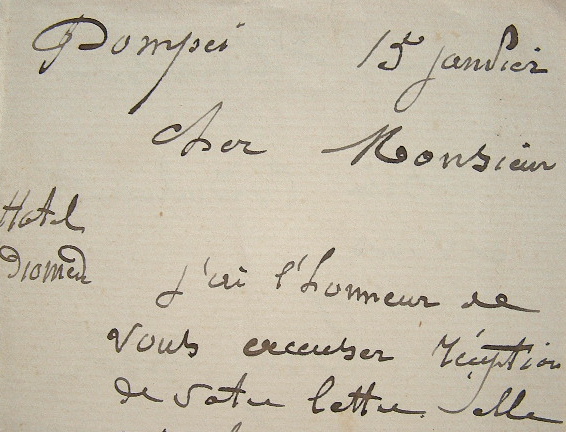 Pompei 15 janvier
cher Monsieur
Hotel
Diomed
j'ai l'honneur de
vous accuser réception
de votre lettre elle